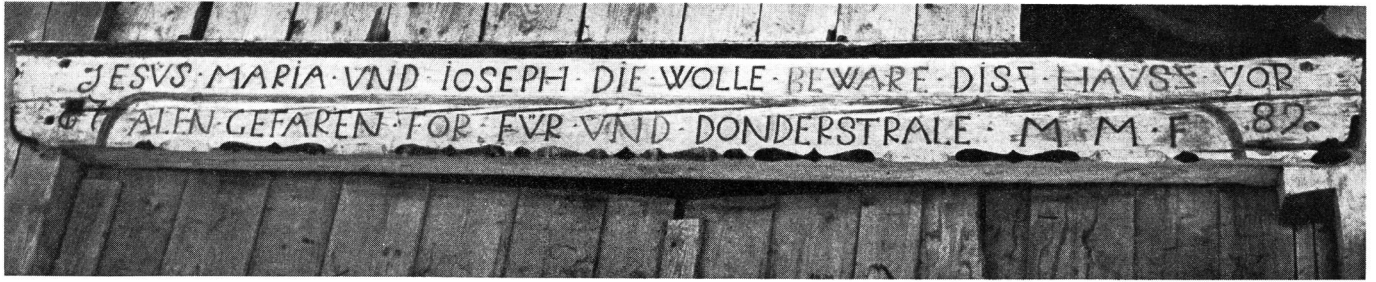 JESVS·MARiA·VND·iOSEPH·DiE·WOLLE·BEWARE·DISZ·HAVSZ·VOR
87 ALEN·GEFAREN·FOR·FVR·VND·DONDERSTRALE·M M·F·82